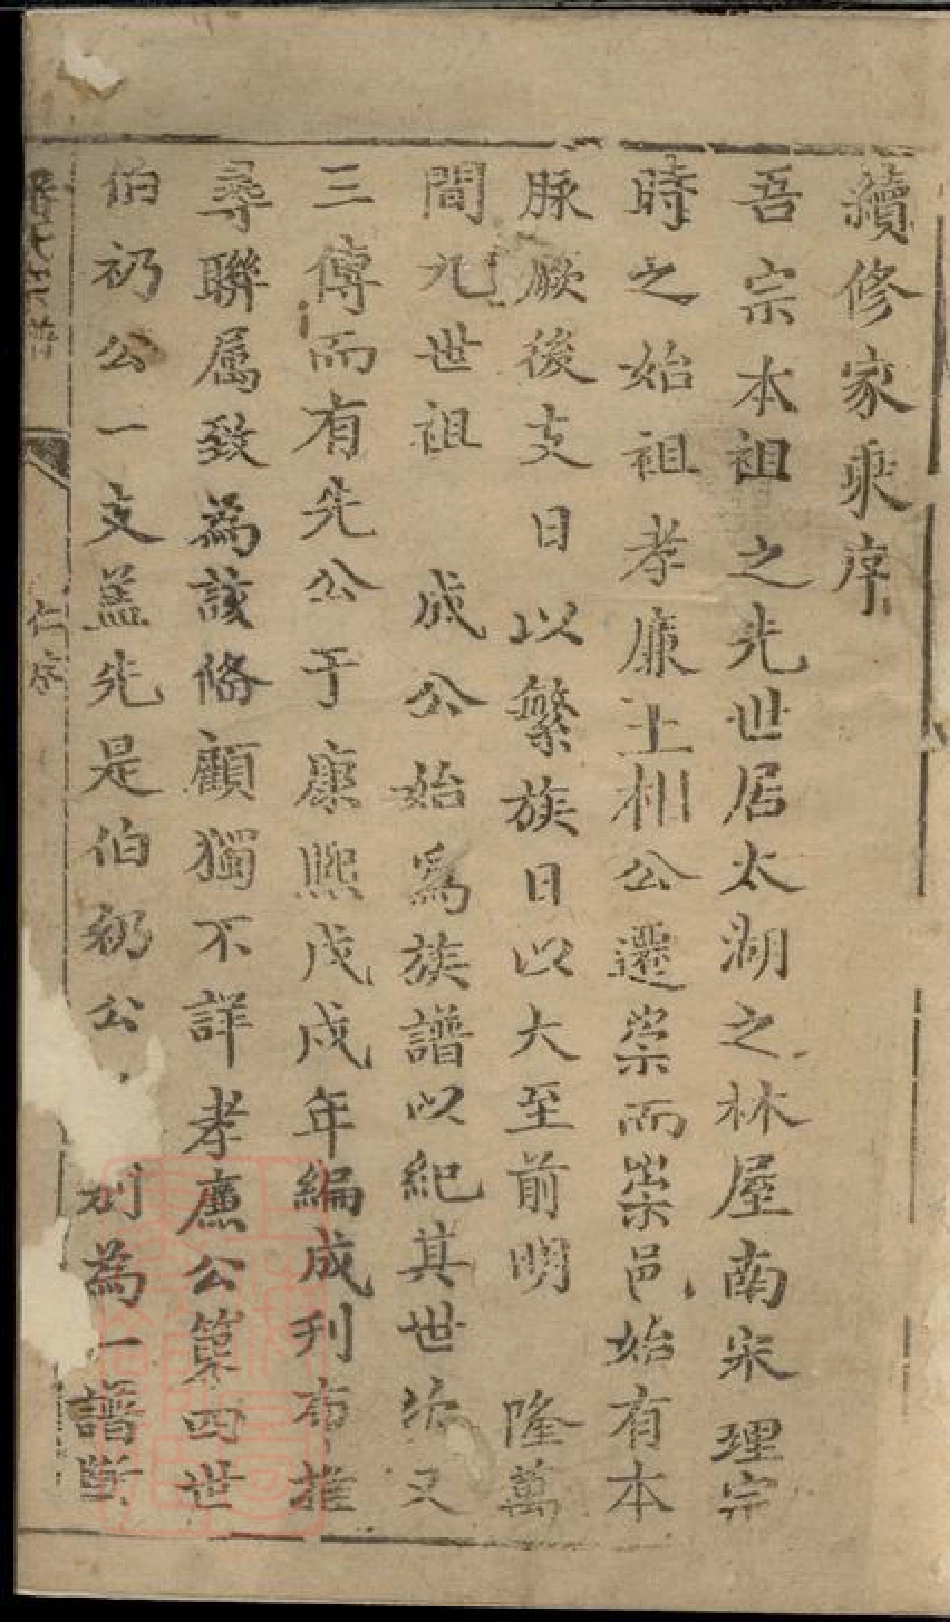 續修家乘序
吾宗本祖之先世居太湖之林屋南宋理宗
時之始祖孝廉上州公遷崇而崇邑始有本
脉厥後支日以繁族日以大至前明隆萬
間九世祖成公始為族譜以紀其世次又
三傳而有先公于康熙戊戌年編成刊布推
尋聯屬致為該備顧獨不詳孝廉公第四世
伯礽公一支蓋先是伯礽公別為一譜斷
仁序